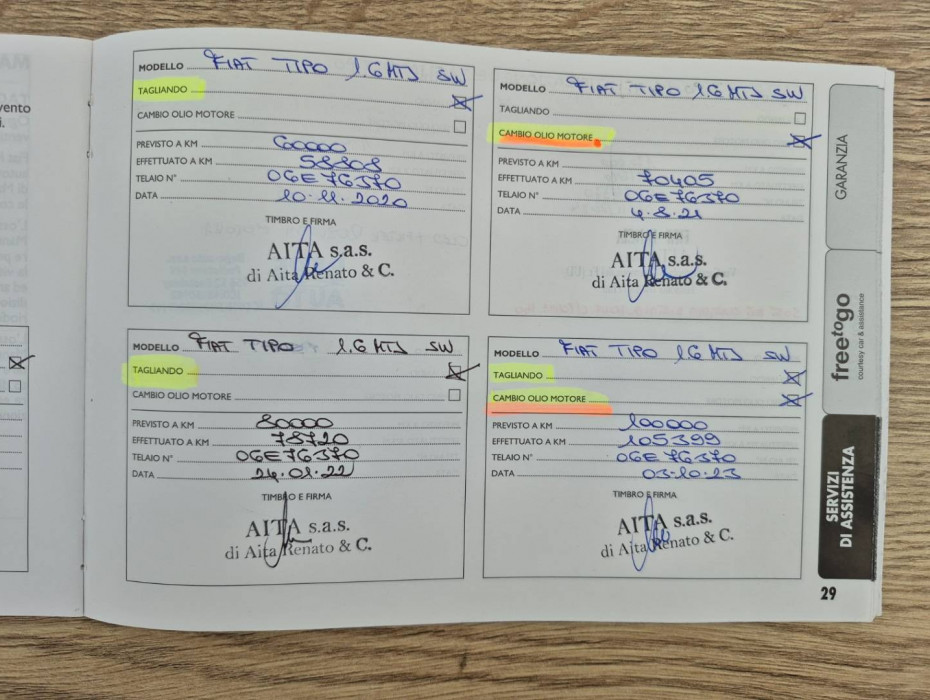 vento
i.
MODELLO FIAT TIPO 1.6 MTJ SW
TAGLIANDO
CAMBIO OLIO MOTORE
PREVISTO A KM 60000
EFFETTUATO A KM 58808
TELAIO N° 0GE76370
DATA 10.11.2020
TIMBRO E FIRMA
AITA s.a.s.
di Aita Renato & C.
MODELLO FIAT TIPO 1.6 MTJ SW
TAGLIANDO
CAMBIO OLIO MOTORE
PREVISTO A KM
EFFETTUATO A KM 70405
TELAIO N° 0GE76370
DATA 4.8.21
TIMBRO E FIRMA
AITA s.a.s.
di Aita Renato & C.
MODELLO FIAT TIPO 1.6 MTJ SW
TAGLIANDO
CAMBIO OLIO MOTORE
PREVISTO A KM 80000
EFFETTUATO A KM 78720
TELAIO N° 0GE76370
DATA 24.01.22
TIMBRO E FIRMA
AITA s.a.s.
di Aita Renato & C.
MODELLO FIAT TIPO 1.6 MTJ SW
TAGLIANDO
CAMBIO OLIO MOTORE
PREVISTO A KM 100000
EFFETTUATO A KM 105399
TELAIO N° 0GE76370
DATA 03.10.23
TIMBRO E FIRMA
AITA s.a.s.
di Aita Renato & C.
GARANZIA
freetogo
courtesy car & assistance
SERVIZI
DI ASSISTENZA
29